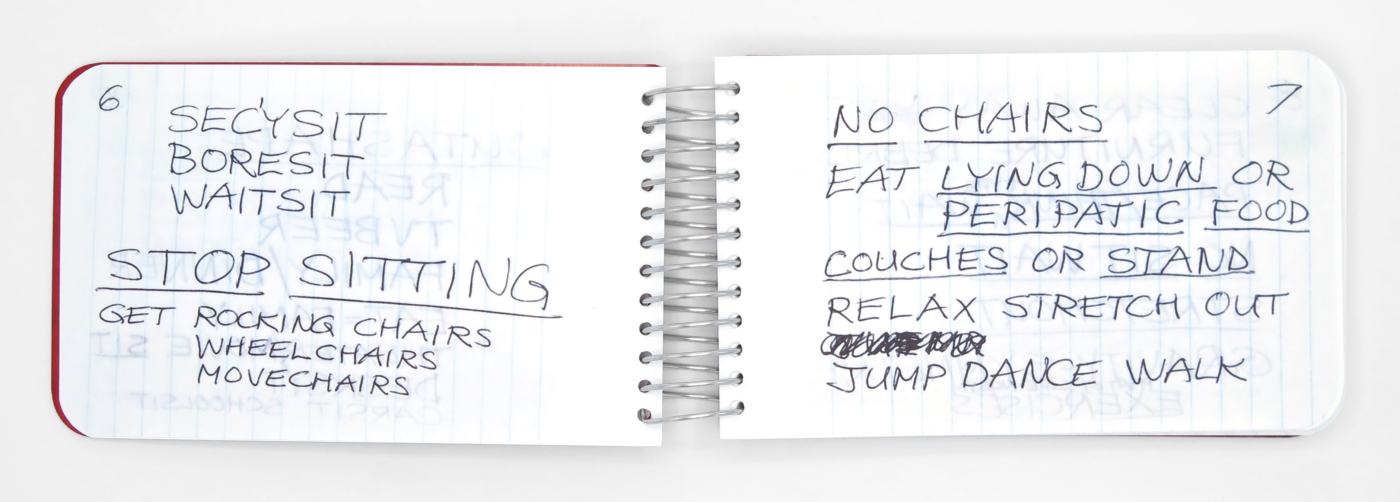 6
SEC'YSIT
BORESIT
WAITSIT
STOP SITTING
GET ROCKING CHAIRS
WHEELCHAIRS
MOVECHAIRS
7
NO CHAIRS
EAT LYING DOWN OR
PERIPATIC FOOD
COUCHES OR STAND
RELAX STRETCH OUT
JUMP DANCE WALK